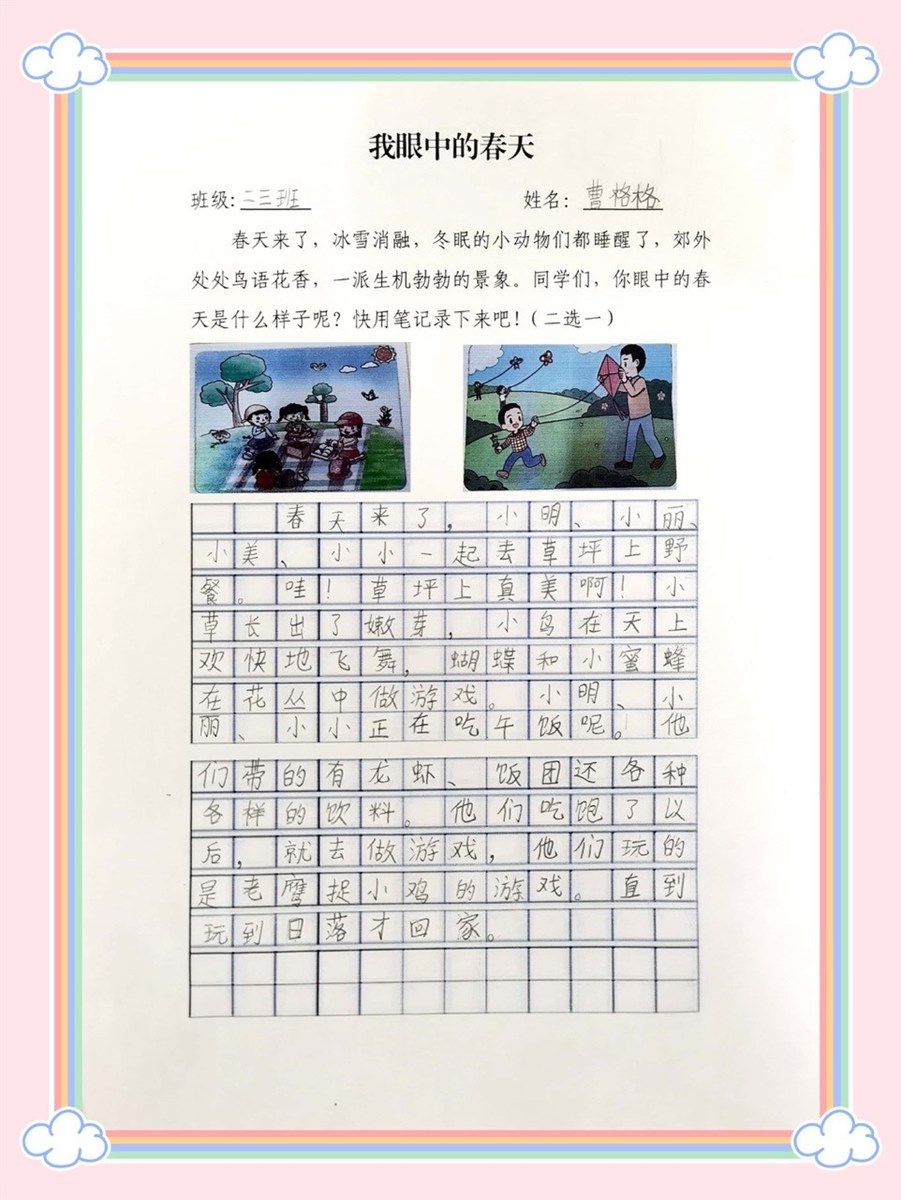 我眼中的春天
班级:二三班 姓名：曹格格
春天来了，冰雪消融，冬眠的小动物们都睡醒了，郊外
处处鸟语花香，一派生机勃勃的景象。同学们，你眼中的春
天是什么样子呢？快用笔记录下来吧！（二选一）
春天来了，小明、小丽、
小美、小小一起去草坪上野
餐。哇！草坪上真美啊！小
草长出了嫩芽，小鸟在天上
欢快地飞舞，蝴蝶和小蜜蜂
在花丛中做游戏。小明、小
丽、小小正在吃午饭呢。他
们带的有龙虾、饭团还各种
各样的饮料。他们吃饱了以
后，就去做游戏，他们玩的
是老鹰捉小鸡的游戏。直到
玩到日落才回家。